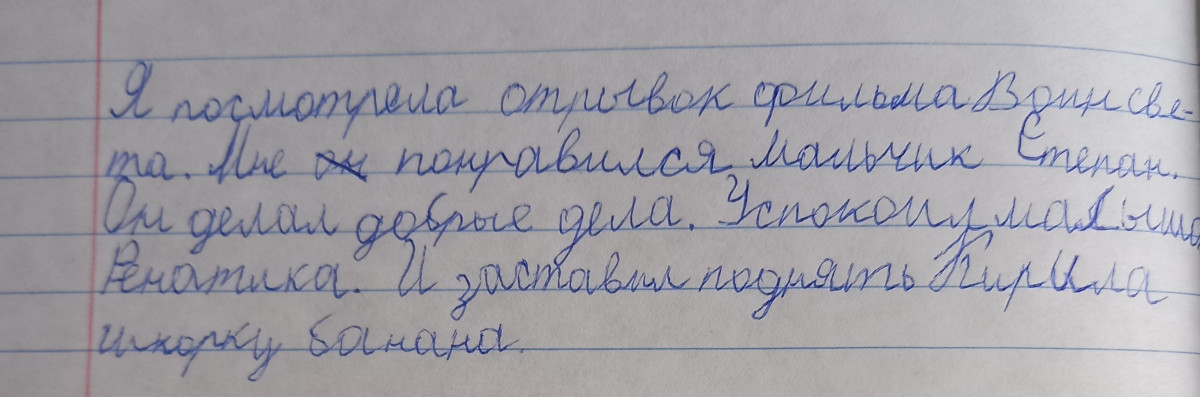 Я посмотрела отрывок фильма Воин све-
та. Мне он понравился мальчик Степан.
Он делал добрые дела. Успокоил малыша
Ренатика. И заставил поднять Кирила
шкорку банана.